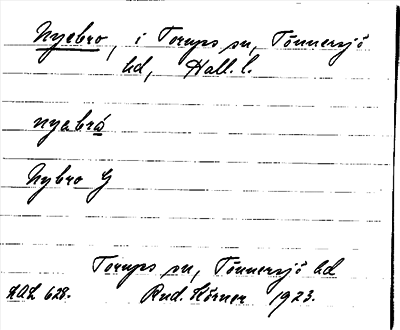 Nyebro, i Torups sn, Tönnersjö
hd, Hall. l.
nyabrå
Nybro G
Torups sn, Tönnersjö hd
LAL 628. Rud. Körner 1923.